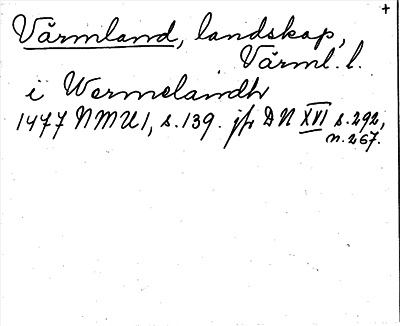 +
Värmland, landskap,
Värml. l.
i Wermelandh
1477 NMU 1, s. 139. jfr DN XVI s. 292,
n. 267.